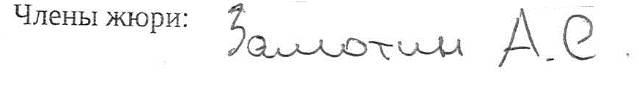 Члены жюри: Замотин А. С.